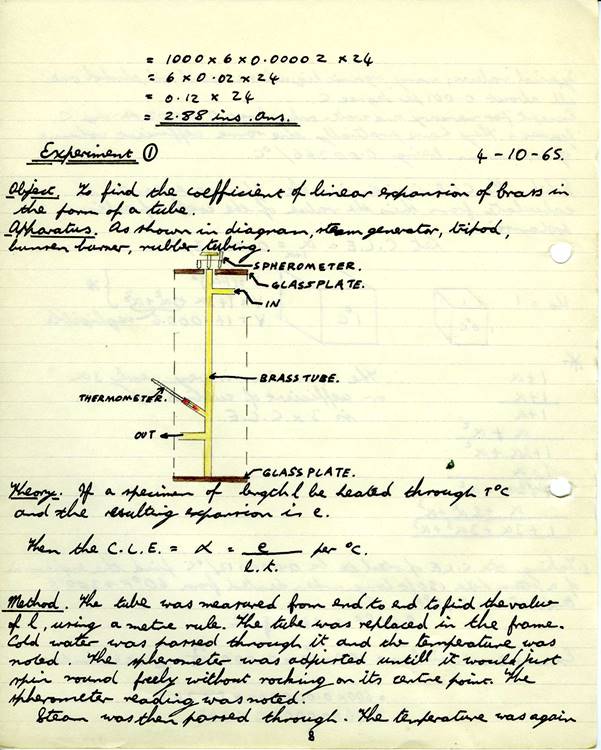 = 1000 x 6 x 0.00002 x 24
= 6 x 0.02 x 24
= 0.12 x 24
= 2.88 ins Ans.
Experiment ①
4-10-65.
Object. To find the coefficient of linear expansion of brass in
the form of a tube.
Apparatus. As shown in diagram, steam generator, tripod,
bunsen burner, rubber tubing.
SPHEROMETER.
GLASS PLATE.
IN
BRASS TUBE.
THERMOMETER.
OUT
GLASS PLATE.
Theory. If a specimen of length l be heated through T°C
and the resulting expansion is e.
Then the C.L.E. = α = e / l.t. per °C.
Method. The tube was measured from end to end to find the value
of l, using a metre rule. The tube was replaced in the frame.
Cold water was passed through it and the temperature was
noted. The spherometer was adjusted untill it would just
spin round freely without rocking on its centre point. The
spherometer reading was noted.
Steam was then passed through. The temperature was again
8